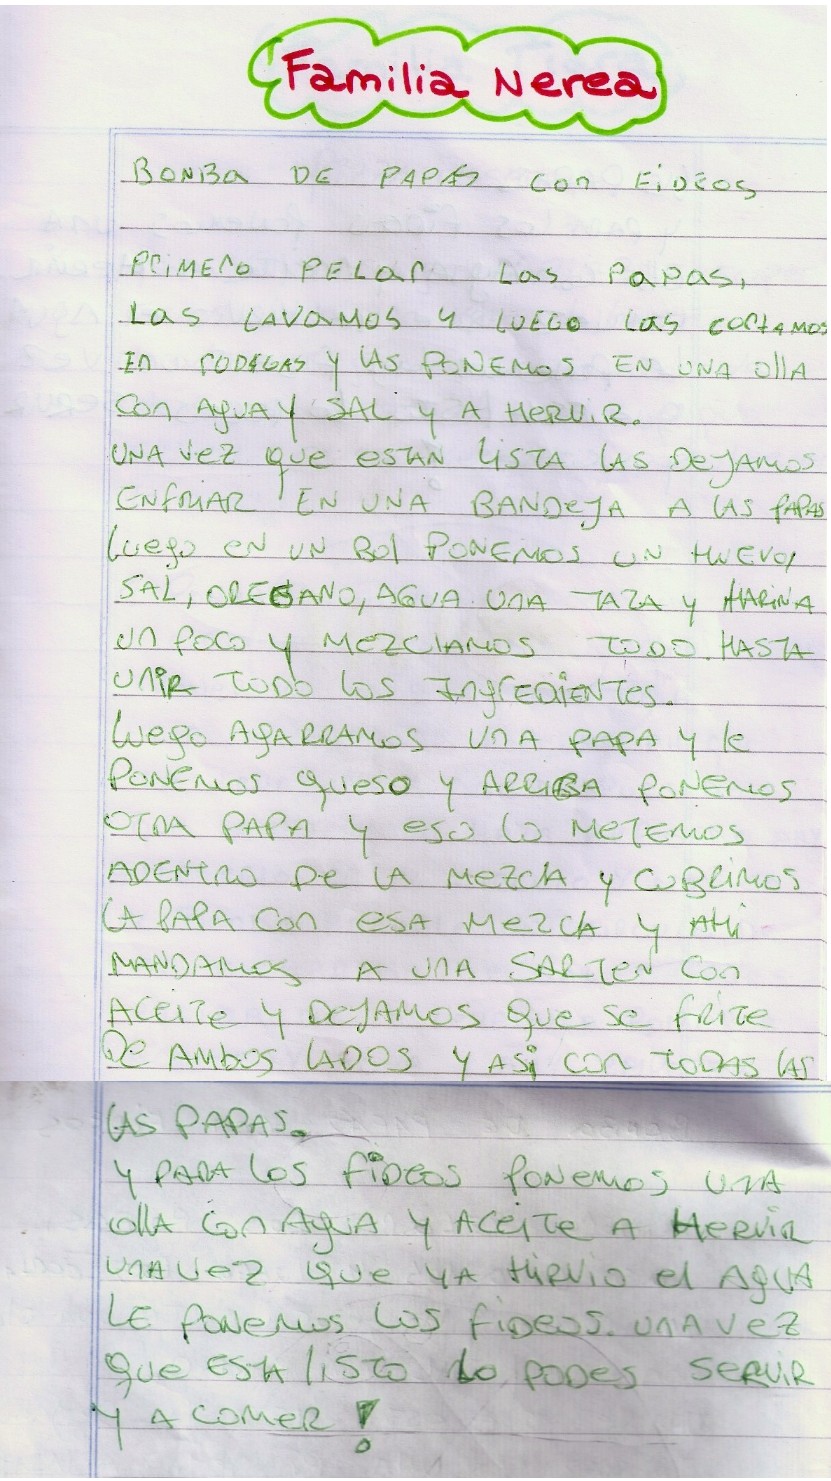 Familia Nerea
BONBa DE PAPAS con FiDEOS
PRIMERO PELAR Las PaPas,
Las LAVAMOS Y LUEGO LAS CORTAMOS
En RODEGAS Y LAS PONEMOS EN UNA OllA
Con AguA Y SAL Y A HERVIR.
UNA VEZ que ESTAN LISTA LAS DEJAMOS
ENFRIAR EN UNA BANDEJA A LAS PAPAS
Luego EN UN Bol PONEMOS UN HUEVO,
SAL, OREGANO, AGUA UNA TAZA Y HARINA
Un POCO Y MEZCLAMOS TODO HASTA
UNIR TODO LOS INgREDIENTES.
Luego AgARRAMOS UNA PAPA Y le
PONEMOS queso Y ARRIBA PONEMOS
OTRA PAPA Y eso lo METEMOS
ADENTRO De LA MEZCLA Y CUBRIMOS
LA PAPA Con ESA MEZCLA Y AHI
MANDAMOS A UNA SARTEN Con
ACEITE Y DEJAMOS que se FRITE
DE AMBOS LADOS Y ASi con TODAS LAS
LAS PAPAS.
Y PARA LOS FiDEOS PONEMOS UNA
OllA Con AguA Y ACEITE A HERVIR
UNA VEZ que YA HIRVIO el AguA
LE PONEMOS LOS FiDEOS. UNA VEZ
que ESTA LISTO LO PODES SERVIR
Y A COMER!